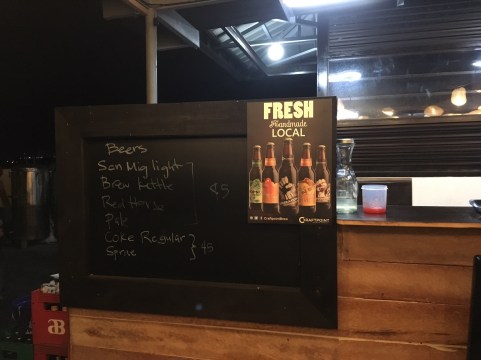 Beers
San Mig light
Brew Kettle
Red Horse
¢5
Coke Regular
Sprite
¢5
FRESH
Handmade
LOCAL
CRAFTPOINT